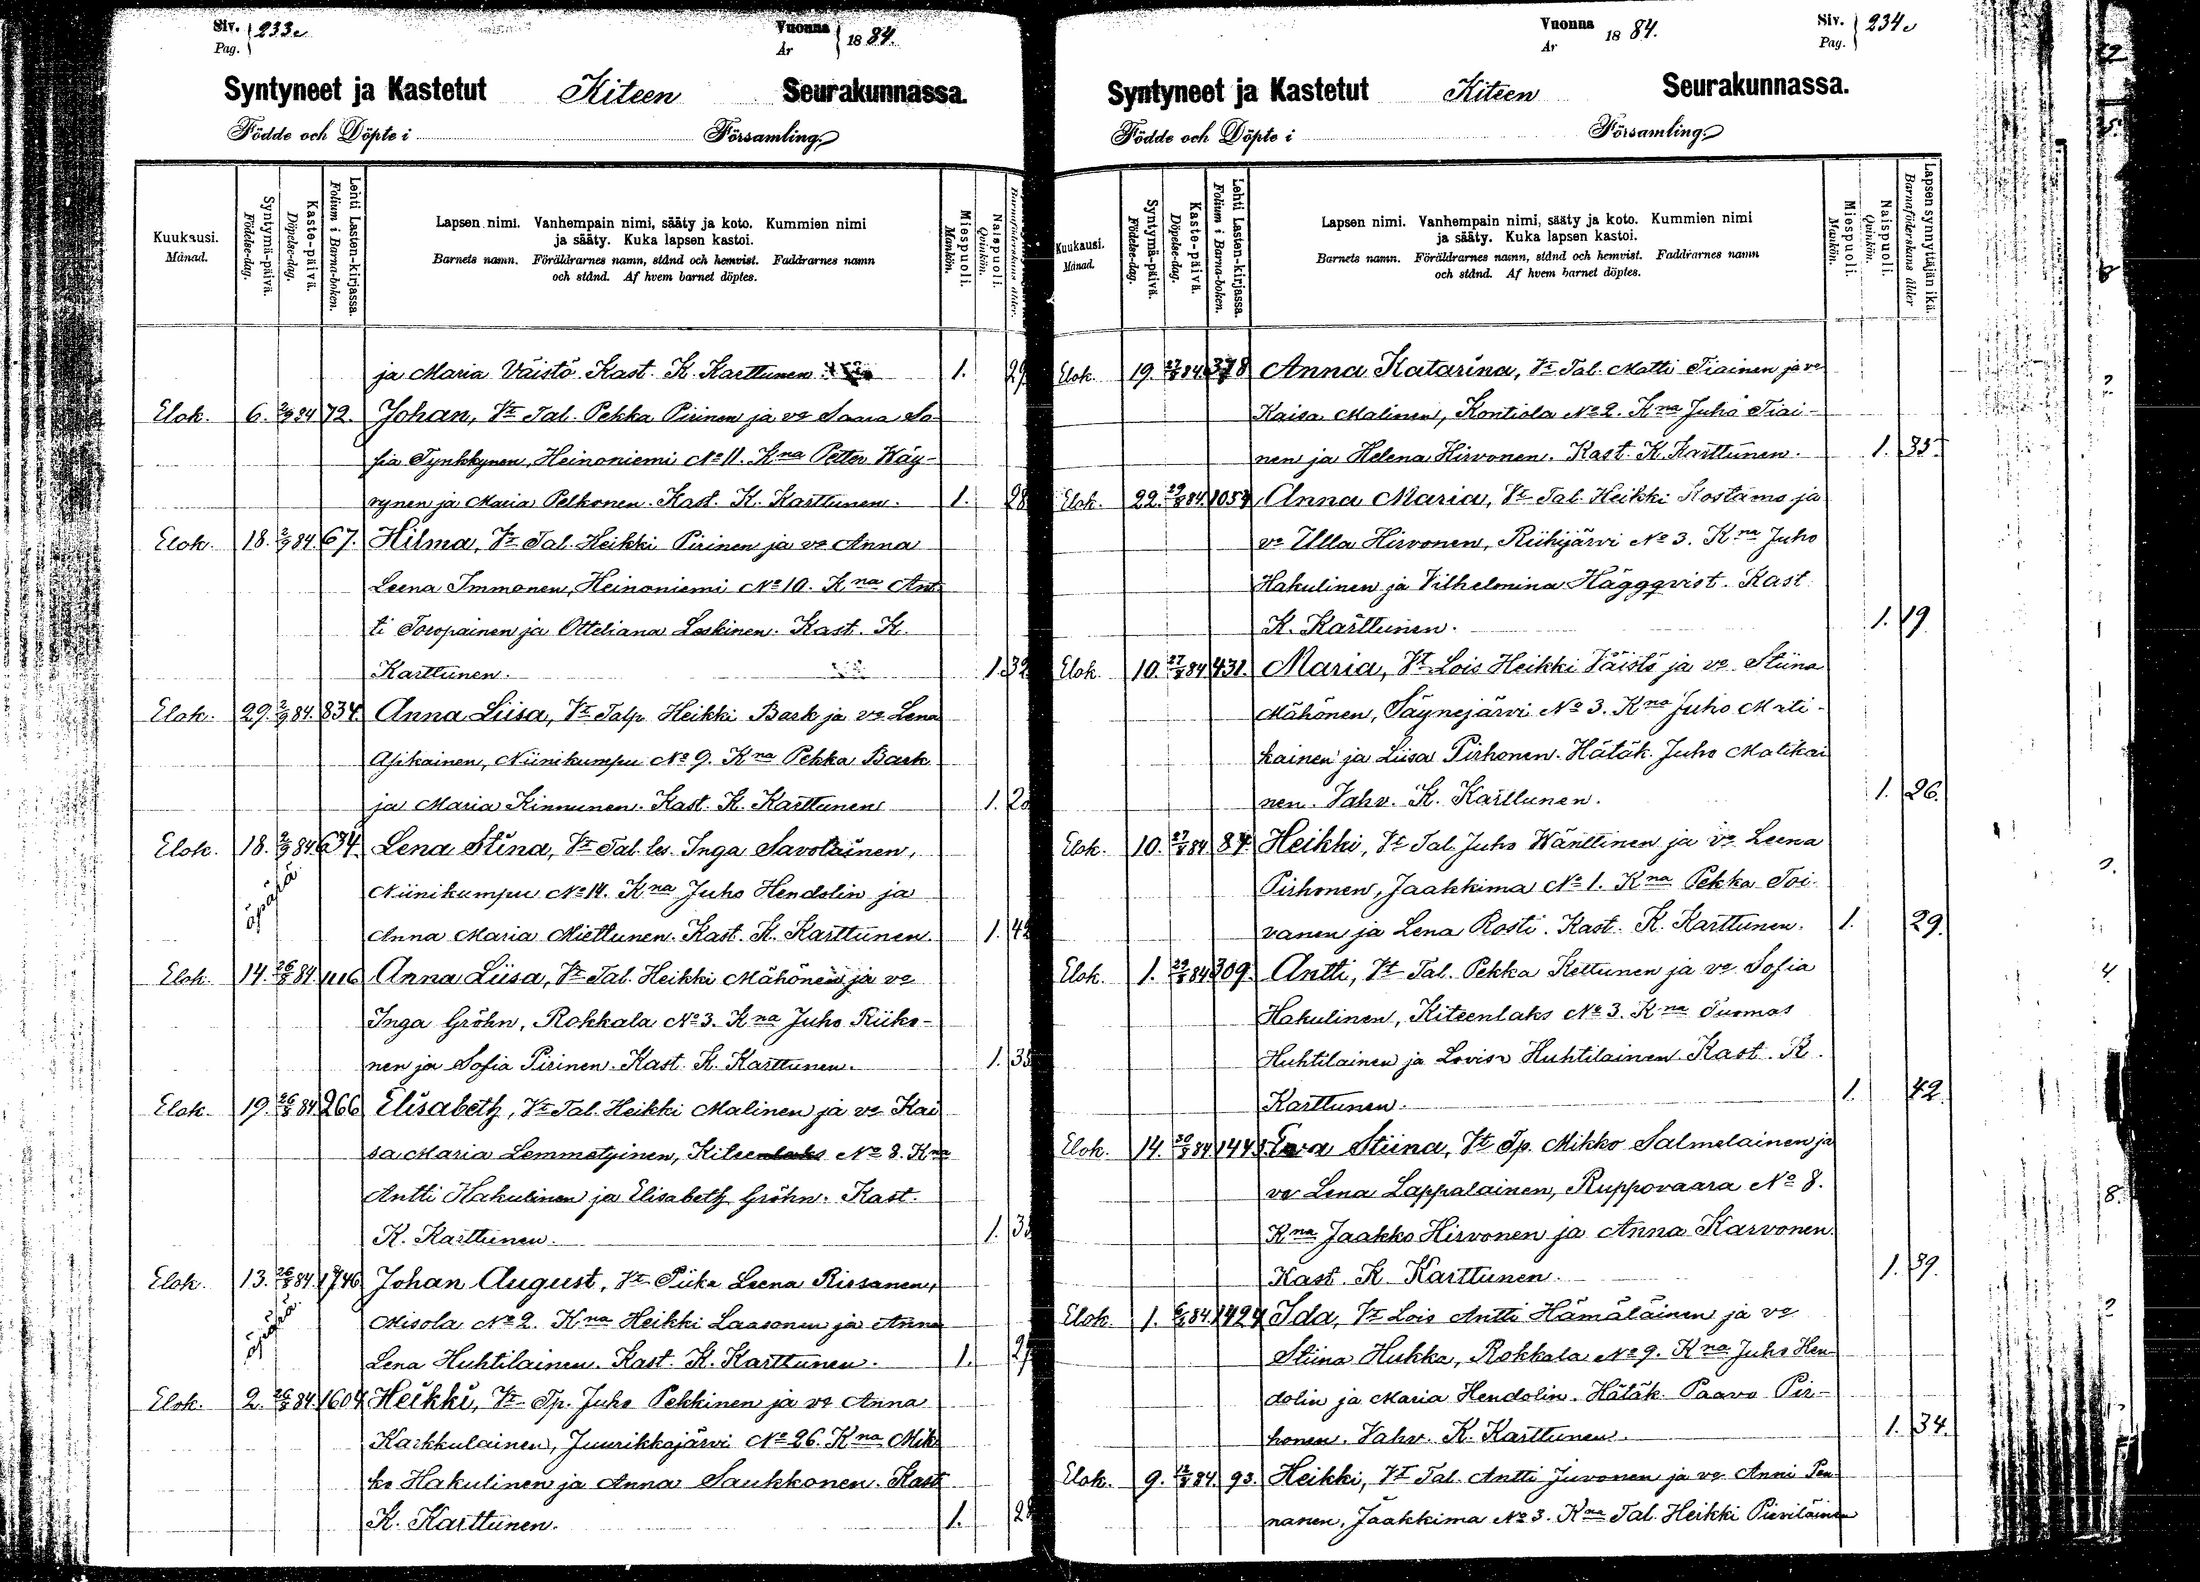 Siv. Pag. 233.
Vuonna År 1884.
Syntyneet ja Kastetut Kiteen Seurakunnassa.
Födde och Döpte i Församling.
Kuukausi. Månad.
Syntymä-päivä. Födelse-dag.
Kaste-päivä. Döpelse-dag.
Lehti Lasten-kirjassa. Folium i Barna-boken.
Lapsen nimi. Vanhempain nimi, sääty ja koto. Kummien nimi
ja sääty. Kuka lapsen kastoi.
Barnets namn. Föräldrarnes namn, stånd och hemvist. Faddrarnes namn
och stånd. Af hvem barnet döptes.
Miespuoli. Mankön.
Naispuoli. Qvinkön.
Barnaföderskans ålder.
ja Maria Väistö. Kast. K. Karttunen 1. 29
Elok. 6. 2/9 84 72. Johan, Vt Tal. Pekka Pirinen ja vo Saara So
fia Tynkkynen, Heinoniemi No 11. Kna Petter Käy-
rynen ja Maria Pelkonen. Kast. K. Karttunen. 1. 28
Elok. 18. 2/9 84. 67. Hilma, Vt Tal. Heikki Pirinen ja vo Anna
Leena Immonen, Heinoniemi No 10. Kna Ant
ti Toropainen ja Otteliana Leskinen. Kast. K.
Karttunen. 1. 32
Elok. 29. 2/9 84. 834. Anna Liisa, Vt Talp. Heikki Bark ja vo Lena
Asikainen, Niinikumpu No 9. Kna Pekka Bark
ja Maria Kinnunen. Kast. K. Karttunen 1. 2
Elok. 18. 2/9 84 634. Lena Stina, Vt Tal. les. Inga Savolainen,
äpärä
Niinikumpu No 14. Kna Juho Hendolin ja
Anna Maria Miettunen. Kast. K. Karttunen. 1. 42
Elok. 14. 26/8 84. 1116 Anna Liisa, Vt Tal. Heikki Mähönen ja vo
Inga Gröhn, Rokkala No 3. Kna Juho Riiko-
nen ja Sofia Pirinen. Kast. K. Karttunen. 1. 35
Elok. 19. 26/8 84. 266 Elisabeth, Vt Tal. Heikki Malinen ja vo Kai
sa Maria Lemmetyinen, Kiteenlaks No 8. Kna
Antti Hakulinen ja Elisabeth Gröhn. Kast.
K. Karttunen. 1. 3
Elok. 13. 26/8 84. 1746 Johan August, Vt Piika Leena Rissanen,
äpärä
Misola No 2. Kna Heikki Laasonen ja Anna
Lena Huhtilainen. Kast. K. Karttunen. 1. 2
Elok. 2. 26/8 84. 1604 Heikki, Vt Tp. Juho Pekkinen ja vo Anna
Karkkulainen, Juurikkajärvi No 26. Kna Mik
ko Hakulinen ja Anna Saukkonen. Kast
K. Karttunen. 1. 28
Vuonna År 1884.
Siv. Pag. 234.
Syntyneet ja Kastetut Kiteen Seurakunnassa.
Födde och Döpte i Församling.
Kuukausi. Månad.
Syntymä-päivä. Födelse-dag.
Kaste-päivä. Döpelse-dag.
Lehti Lasten-kirjassa. Folium i Barna-boken.
Lapsen nimi. Vanhempain nimi, sääty ja koto. Kummien nimi
ja sääty. Kuka lapsen kastoi.
Barnets namn. Föräldrarnes namn, stånd och hemvist. Faddrarnes namn
och stånd. Af hvem barnet döptes.
Miespuoli. Mankön.
Naispuoli. Qvinkön.
Lapsen synnyttäjän ikä. Barnaföderskans ålder
Elok. 19. 27/8 84 378 Anna Katarina, Vt Tal. Matti Tiainen ja vo
Kaisa Malinen, Kontiola No 2. Kna Juho Tiai-
nen ja Helena Hirvonen. Kast. K. Karttunen. 1. 35.
Elok. 22. 29/8 84. 1054 Anna Maria, Vt Tal. Heikki Kostamo ja
vo Ulla Hirvonen, Riihijärvi No 3. Kna Juho
Hakulinen ja Vilhelmina Häggqvist. Kast
K. Karttunen. 1. 19
Elok. 10. 27/8 84 431. Maria, Vt Lois Heikki Väistö ja vo Stiina
Mähönen, Säynejärvi No 3. Kna Juho Mati-
kainen ja Liisa Pirhonen. Hätäk. Juho Matikai
nen. Vahv. K. Karttunen. 1. 26.
Elok. 10. 27/8 84. 84. Heikki, Vt Tal. Juho Wänttinen ja vo Leena
Pirhonen, Jaakkima No 1. Kna Pekka Toi-
vanen ja Lena Rosti. Kast. K. Karttunen. 1. 29.
Elok. 1. 29/8 84. 309. Antti, Vt Tal. Pekka Kettunen ja vo Sofia
Hakulinen, Kiteenlaks No 3. Kna Tuomas
Huhtilainen ja Lovisa Huhtilainen Kast. K.
Karttunen. 1. 42
Elok. 14. 20/8 84 Eva Stiina, Vt Tp. Mikko Salmelainen ja
vo Lena Lappalainen, Ruppovaara No 8.
Kna Jaakko Hirvonen ja Anna Karvonen.
Kast. K. Karttunen. 1. 39.
Elok. 1. 6/8 84. 1424 Ida, Vt Lois Antti Hämäläinen ja vo
Stiina Hukka, Rokkala No 9. Kna Juho Hen
dolin ja Maria Hendolin. Hätäk. Paavo Pir-
honen. Vahv. K. Karttunen. 1. 34.
Elok. 9. 84. 93. Heikki, Vt Tal. Antti Juvonen ja vo Anni Pen
nanen, Jaakkima No 3. Kna Tal. Heikki Pieviläinen